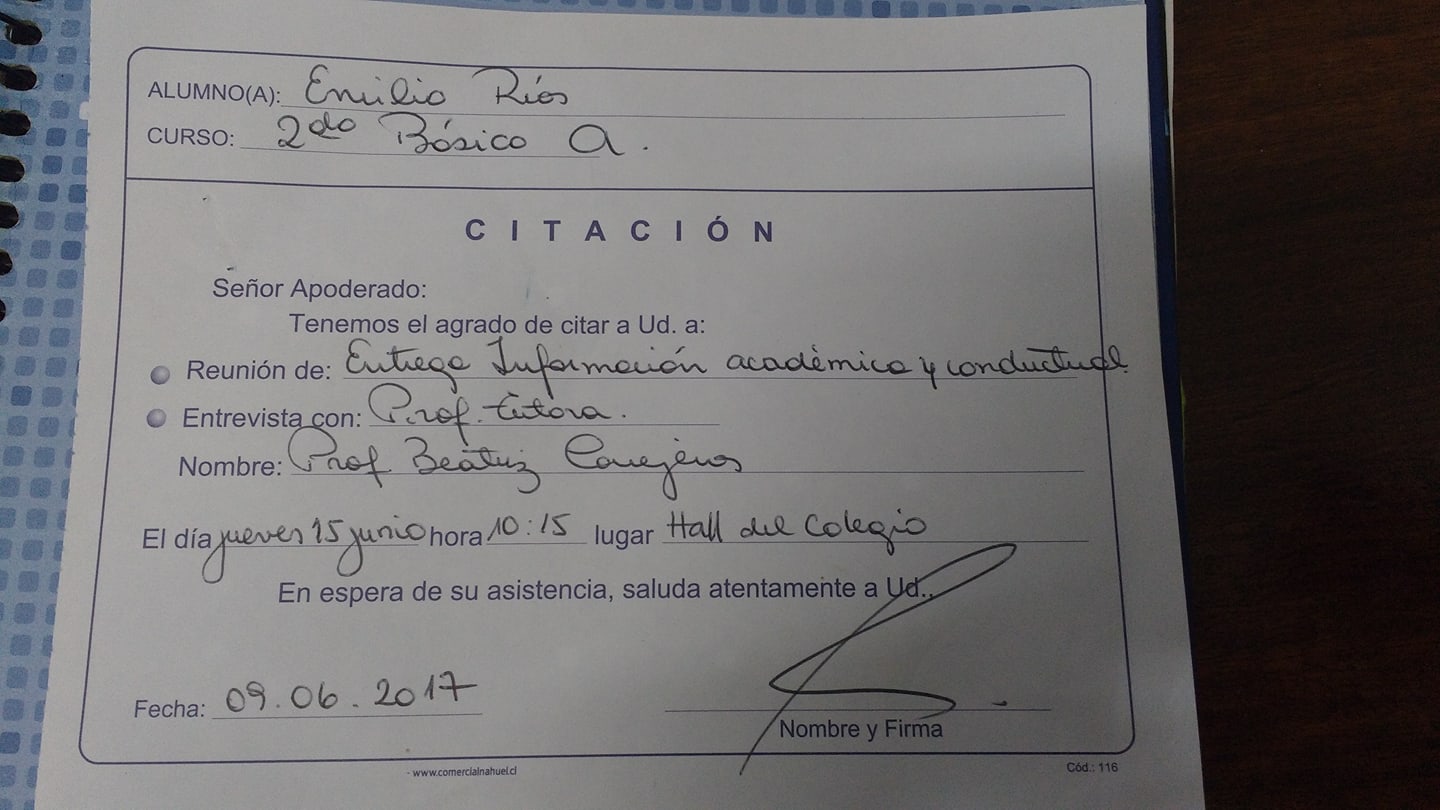 ALUMNO(A): Emilio Ríos
CURSO: 2do Básico A.
CITACIÓN
Señor Apoderado:
Tenemos el agrado de citar a Ud. a:
Reunión de: Entrega Información académica y conductual
Entrevista con: Prof. tutora.
Nombre: Prof Beatriz
El día jueves 15 junio hora 10:15 lugar Hall del Colegio
En espera de su asistencia, saluda atentamente a Ud.,
Fecha: 09.06.2017
Nombre y Firma
- www.comercialnahuel.cl
Cód.: 116